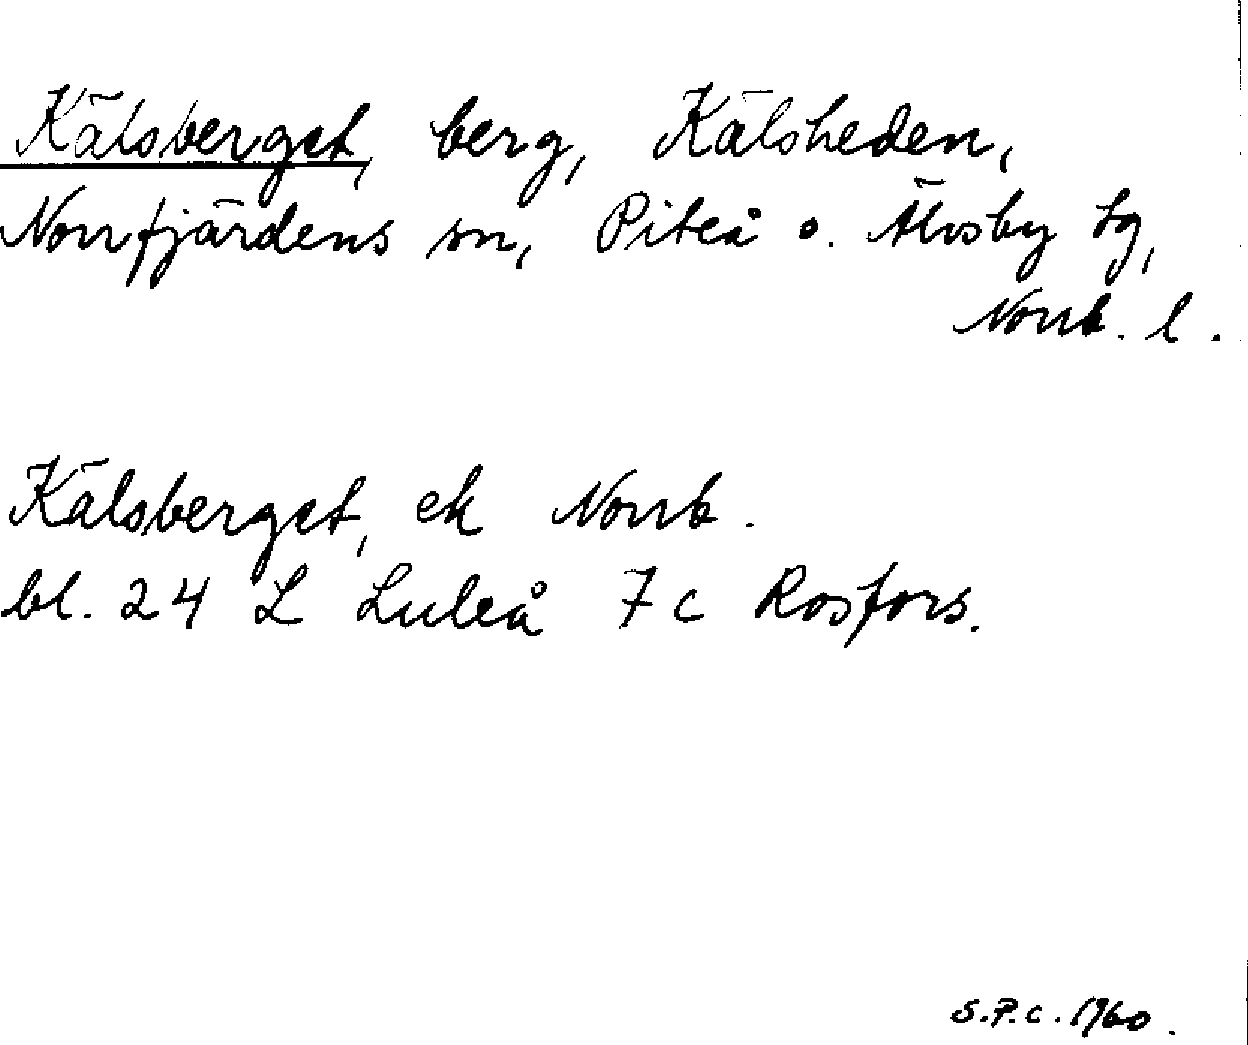 Kälsberget, berg, Kälsheden,
Norrfjärdens sn, Piteå o. Älvsby tg,
Norrb. l.
Kälsberget, ek Norrb.
bl. 24 L Luleå 7c Rosfors.
S.P.C. 1960.